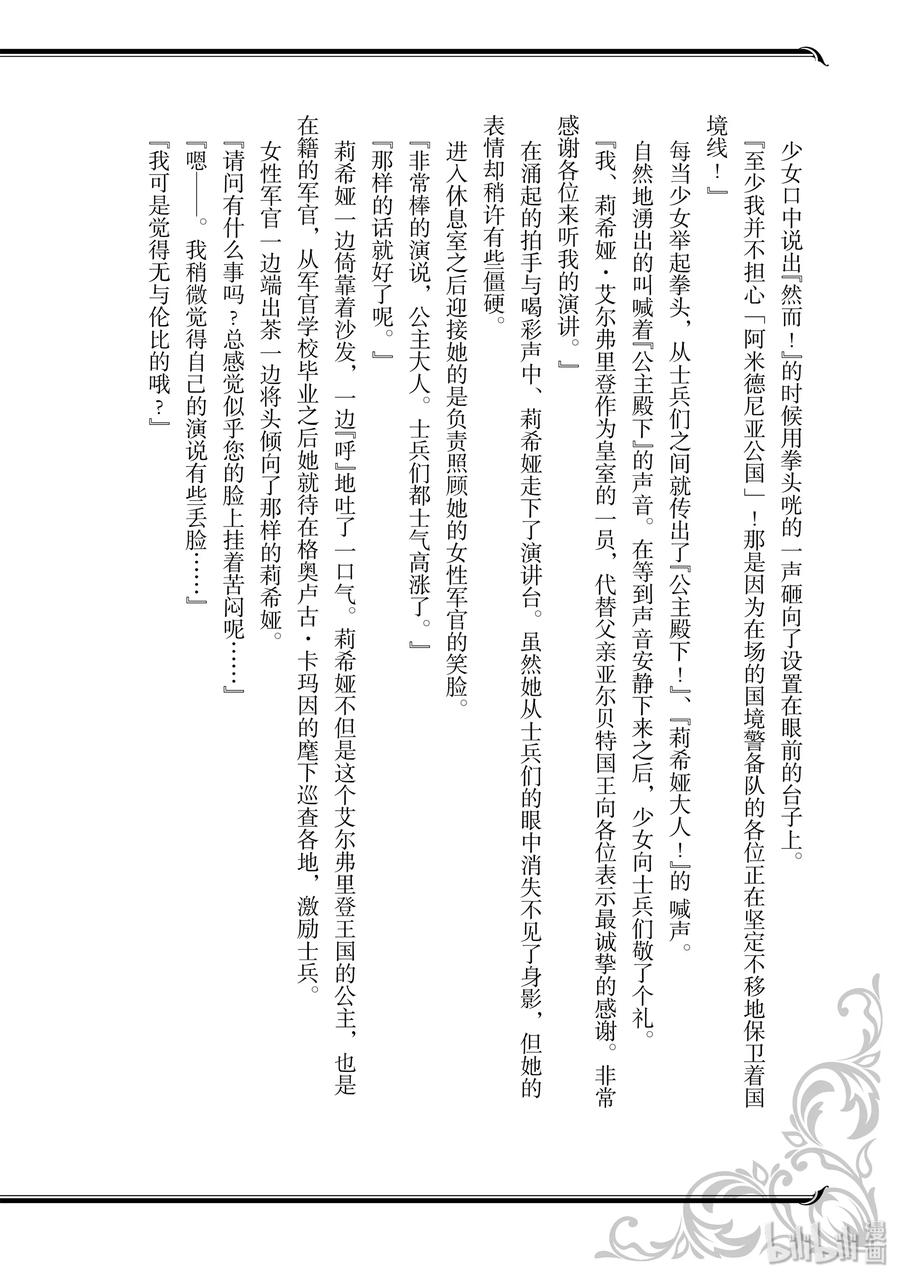 少女口中说出『然而！』的时候用拳头咣的一声砸向了设置在眼前的台子上。
『至少我并不担心「阿米德尼亚公国」！那是因为在场的国境警备队的各位正在坚定不移地保卫着国
境线！』
每当少女举起拳头，从士兵们之间就传出了『公主殿下！』、『莉希娅大人！』的 喊声。
自然地湧出的叫喊着『公主殿下』的声音。在等到声音安静下来之后，少女向士兵们敬了个礼。
『我、莉希娅·艾尔弗里登作为皇室的一员，代替父亲亚尔贝特国王向各位表示最诚挚的感谢。非常
感谢各位来听我的演讲。』
在涌起的拍手与喝彩声中、莉希娅走下了演讲台。虽然她从士兵们的眼中消失不见了身影，但她的
表情却稍许有些僵硬。
进入休息室之后迎接她的是负责照顾她的女性军官的笑脸。
『非常棒的演说，公主大人。士兵们都士气高涨了。』
『那样的话就好了呢。』
莉希娅一边倚靠着沙发，一边『呼』地吐了一口气。莉希娅不但是这个艾尔弗里登王国的公主，也是
在籍的军官，从军官学校毕业之后她就待在格奥卢古·卡玛因的麾下巡查各地，激励士兵。
女性军官一边端出茶一边将头倾向了那样的莉希娅。
『请问有什么事吗?总感觉似乎您的脸上挂着苦闷呢……』
『嗯——。我稍微觉得自己的演说有些丢脸……』
『我可是觉得无与伦比的哦?』
bilibili漫画